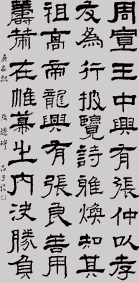 周宣王中興有張仲以孝
友為行披覽詩雅煥知其
祖高帝龍興有張良善用
籌策在帷幕之內決勝負
張遷碑